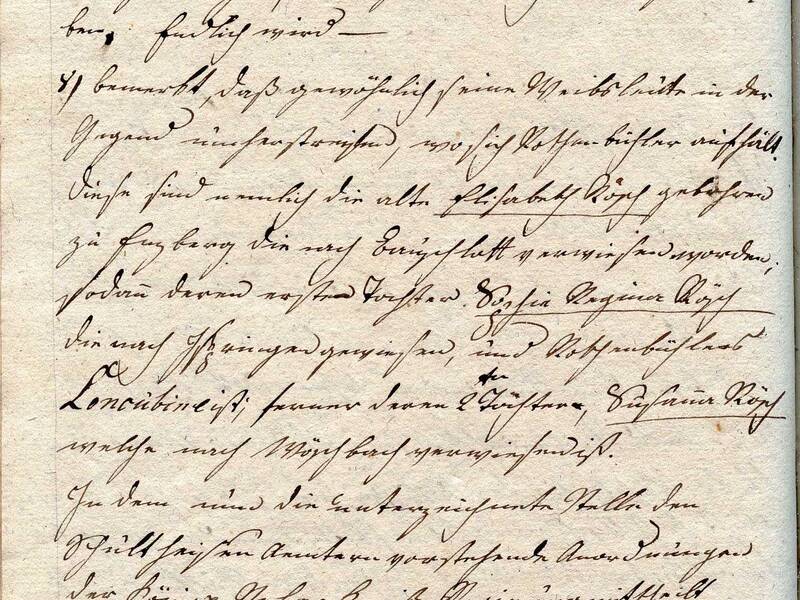 ben. Endlich wird —
8) bemerkt, daß gewöhnlich seine Weibsleüte in der
Gegend ümherstreifen, wo sich Rothenbühler aufhält.
Diese sind nemlich die alte Elisabeth Rösch gebohren
zu Enzberg die nach Bauschlott verwiesen worden,
sodann deren erste Tochter Sophie Regina Rösch
die nach Ispringen gewiesen, und Rothenbühlers
Concubine ist, ferner deren 2te Tochter, Susanna Rösch
welche nach Wöschbach verwiesen ist.
In dem nun die unterzeichnete Stelle den
Schultheisen Aemtern vorstehende Anordnungen
der